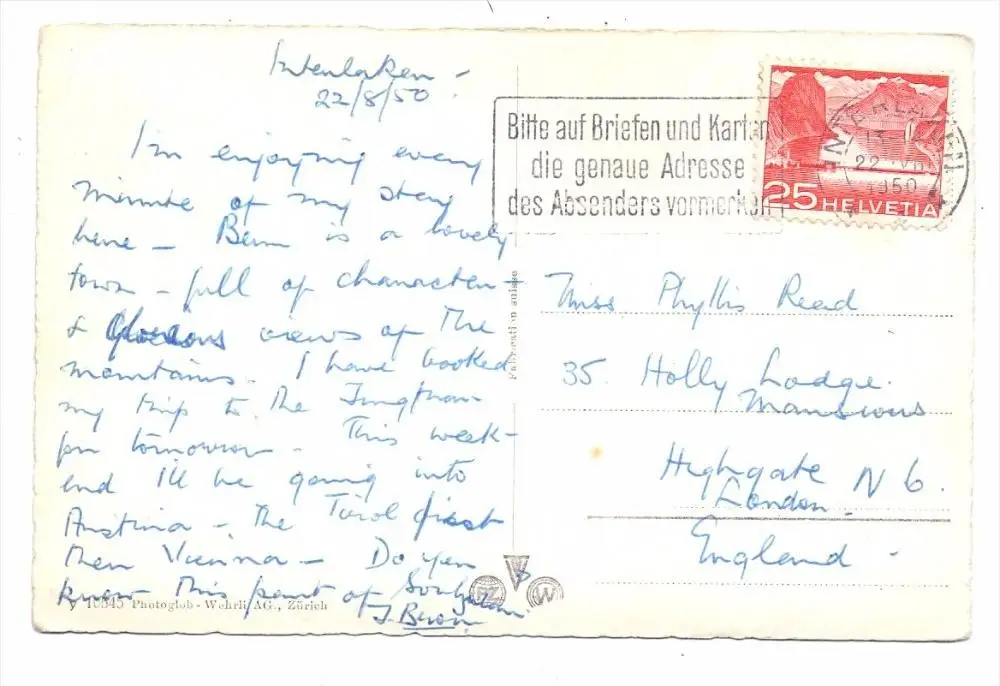 Interlaken -
22/8/50
I'm enjoying every
minute of my stay
here - Bern is a lovely
town - full of character -
& glorious views of the
mountains. I have booked
my trip to the Jungfrau
for tomorrow. This week-
end I'll be going into
Austria - the Tirol first
then Vienna - Do you
know this part of
Bitte auf Briefen und Karten
die genaue Adresse
des Absenders vormerken
INTERLAKEN
22. VIII
1950
25 HELVETIA
Fabrication suisse
Miss Phyllis Reed
35. Holly Lodge.
Mansions
Highgate N 6.
London.
England -
10545 Photoglob-Wehrli AG., Zürich
PZ W